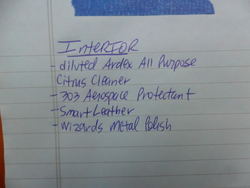 INTERIOR
- diluted Ardex All Purpose
Citrus Cleaner
- 303 Aerospace Protectant
- Smart Leather
- Wizards Metal Polish